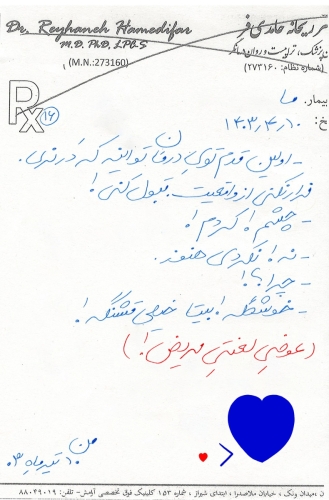 Dr. Reyhaneh Hamedifar
تر ریحانه حامدی فر
M.D, PhD,
پزشک، تراپیست و روان درمانگر
(M.N.:273160)
(شماره نظام: ۲۷۳۱۶۰)
Rx ۱۶
بیمار: ما
خ: ۱۴۰۳٫۴٫۱۰
- اولین قدم توی درمان تو اینه که در نری.
فرار نکنی از واقعیت. قبول کنی!
- چشم! کردم!
- نه! نکردی هنوز.
- چرا؟!
- خوشگله! بیتا خیلی قشنگه!
(عوضیِ لعنتیِ مریض!)
من
۱۰ تیر ماه ۰۳
ن: میدان ونک ، خیابان ملاصدرا ، ابتدای شیراز ، شماره ۱۵۳ کلینیک فوق تخصصی آرامش - تلفن: ۸۸۰۴۹۰۱۹